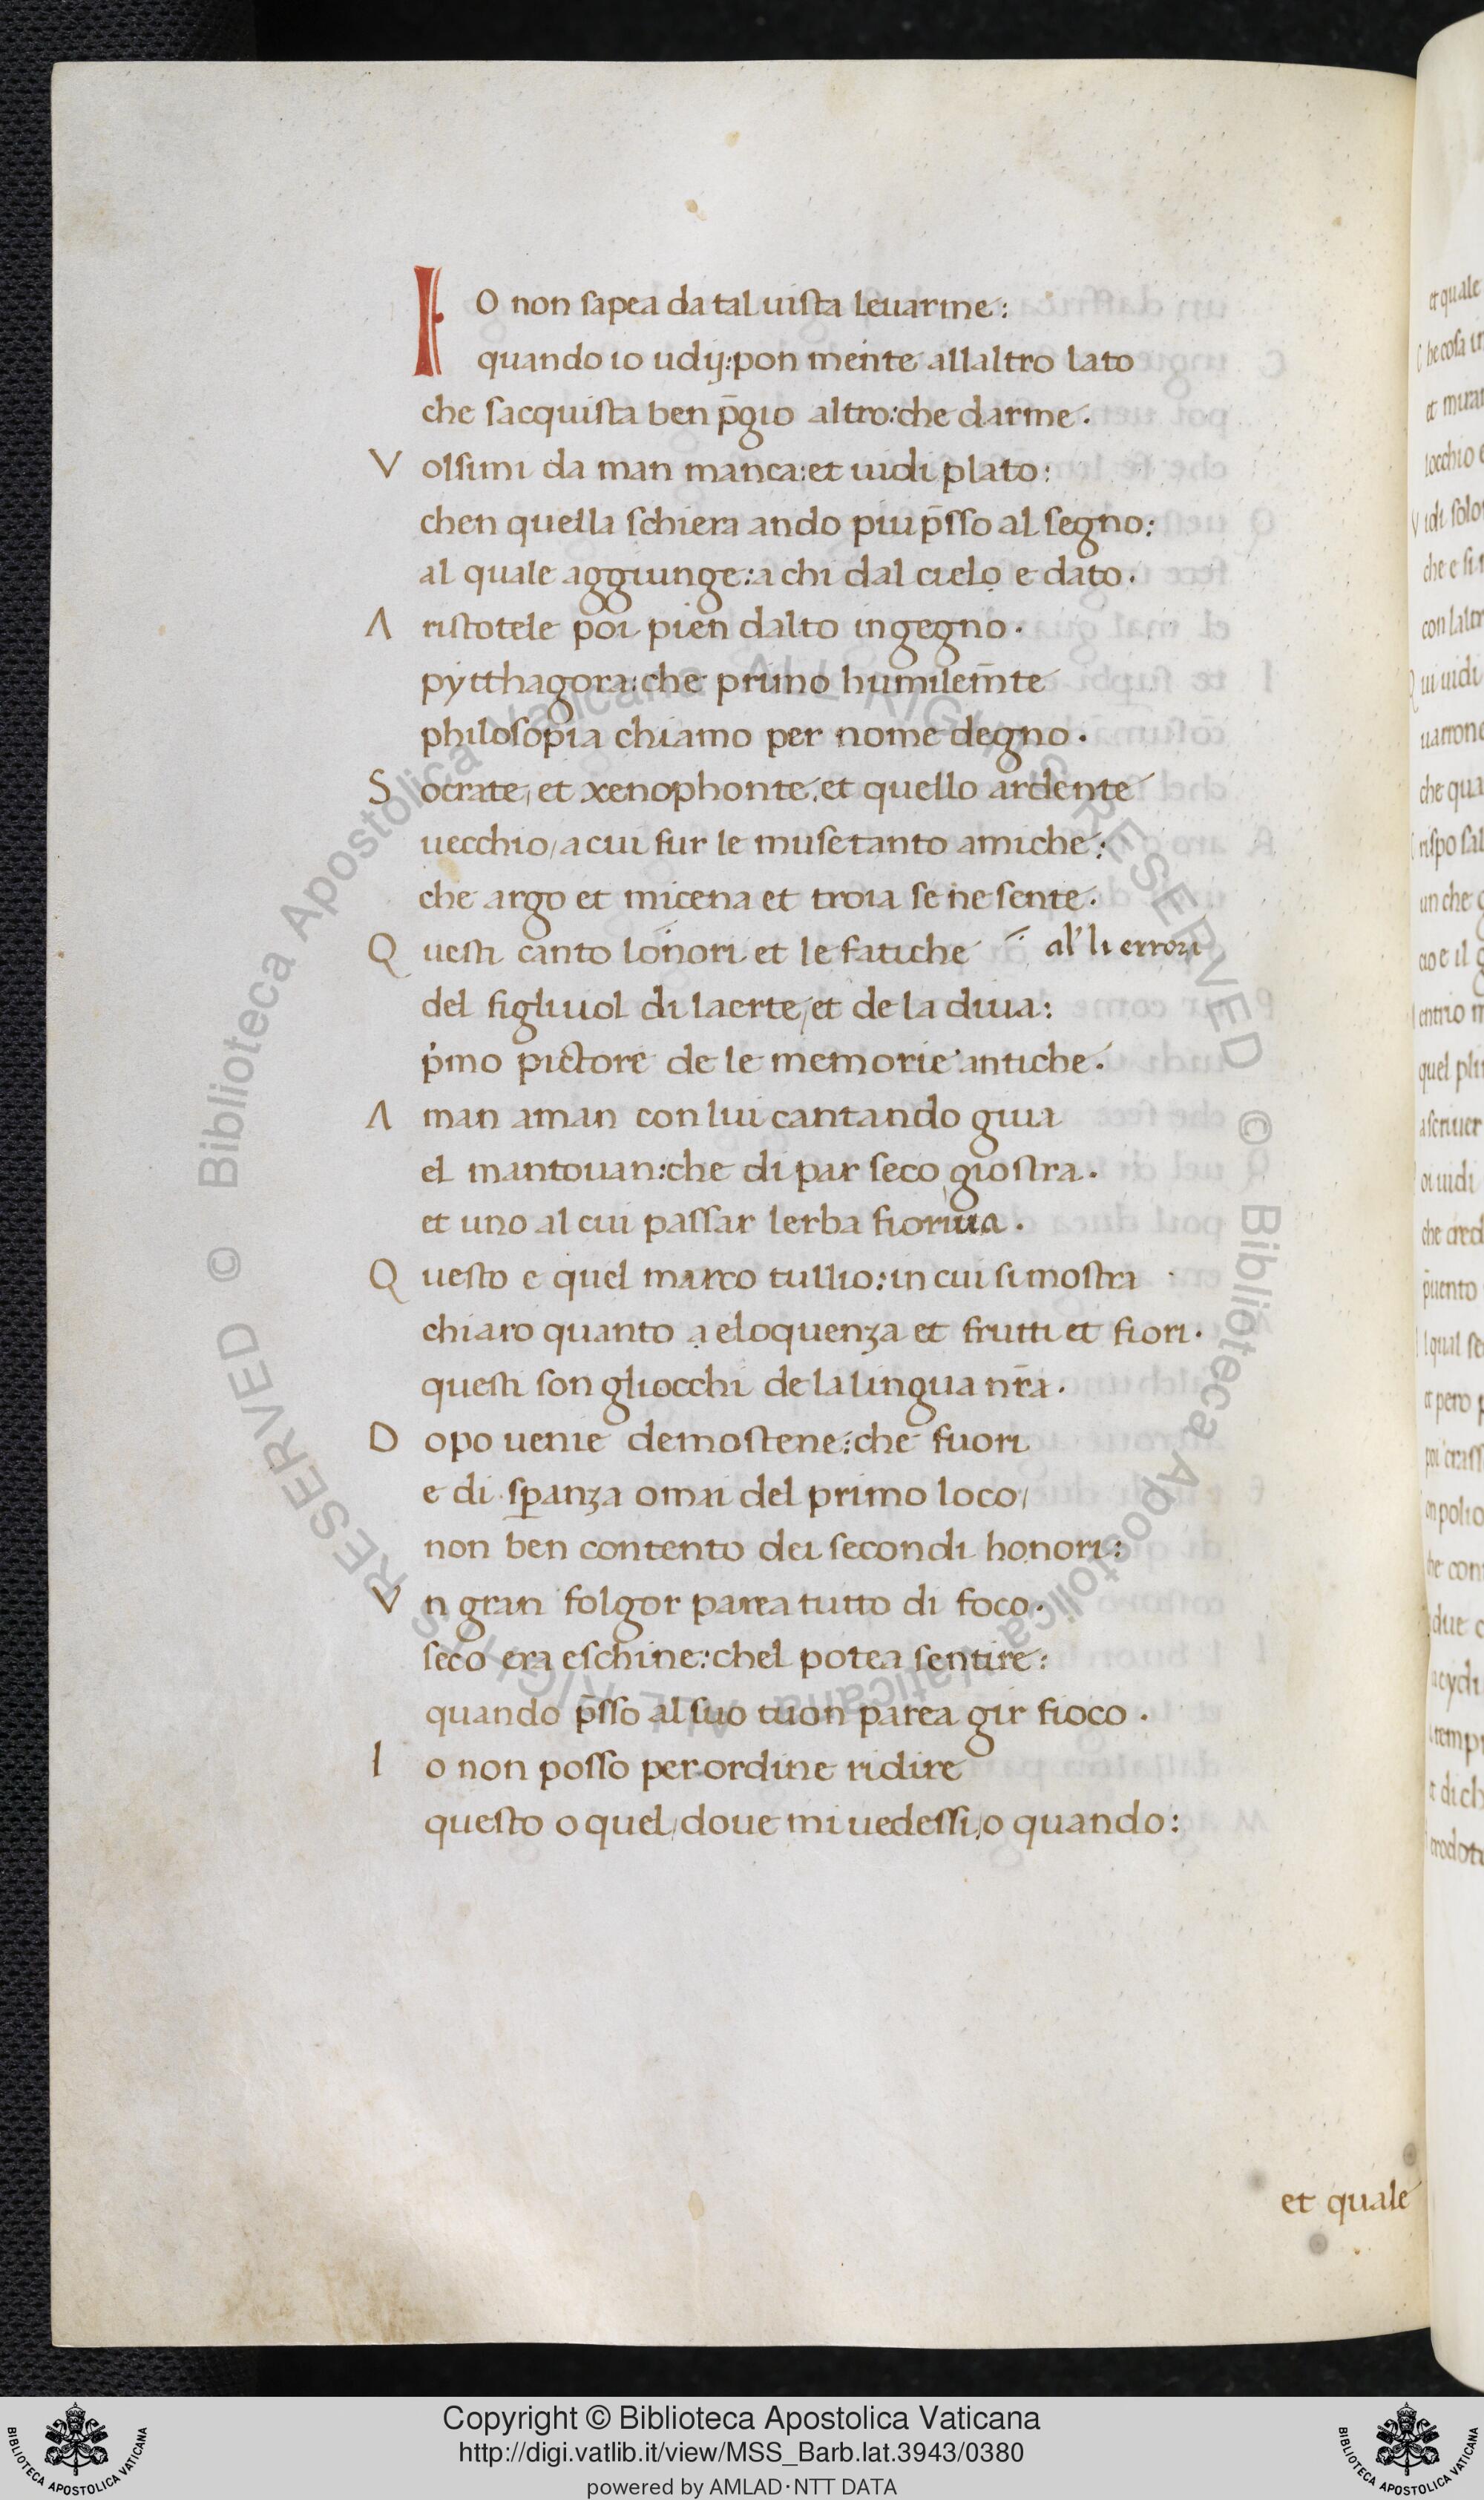 IO non sapea da tal uista leuarme:
quando io udij: pon mente allaltro lato
che sacquista ben p̄gio altro: che darme.
V olsimi da man manca: et uidi plato:
chen quella schiera ando piu p̄sso al segno:
al quale aggiunge: a chi dal cielo e dato.
A ristotele poi pien dalto ingegno.
pytthagora: che primo humilem̄te
philosopia chiamo per nome degno.
S ocrate, et xenophonte, et quello ardente
uecchio/ a cui fur le muse tanto amiche:
che argo et micena et troia se ne sente.
Q uesti canto lonori et le fatiche al' li errori
del figliuol di laerte/ et de la diua:
pͥmo pictore de le memorie antiche.
A man aman con lui cantando giua
el mantouan: che di par seco giostra.
et uno al cui passar lerba fioriua.
Q uesto e quel marco tullio: in cui si mostra
chiaro quanto a eloquenza et frutti et fiori.
questi son gliocchi de la lingua nr̄a.
D opo uenie demostene: che fuori
e di sꝑanza omai del primo loco/
non ben contento dei secondi honori:
V n gran folgor parea tutto di foco.
seco era eschine: chel potea sentire:
quando p̄sso al suo tuon parea gir fioco.
I o non posso per ordine ridire
questo o quel/ doue mi uedessi/ o quando:
et quale
Copyright © Biblioteca Apostolica Vaticana
http://digi.vatlib.it/view/MSS_Barb.lat.3943/0380
powered by AMLAD·NTT DATA
BIBLIOTECA APOSTOLICA VATICANA
BIBLIOTECA APOSTOLICA VATICANA